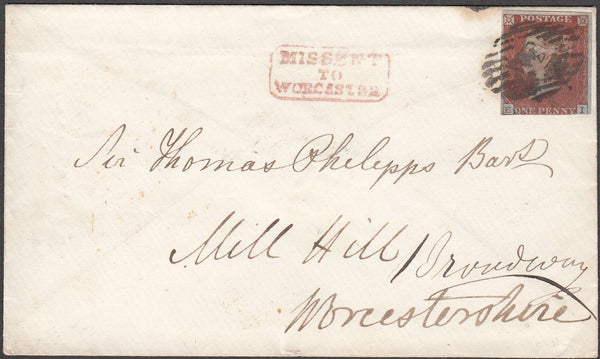 POSTAGE
E ONE PENNY I
MISSENT
TO
WORCESTER
Sir Thomas Philepps Bart
Mill Hill / Broadway
Worcestershire